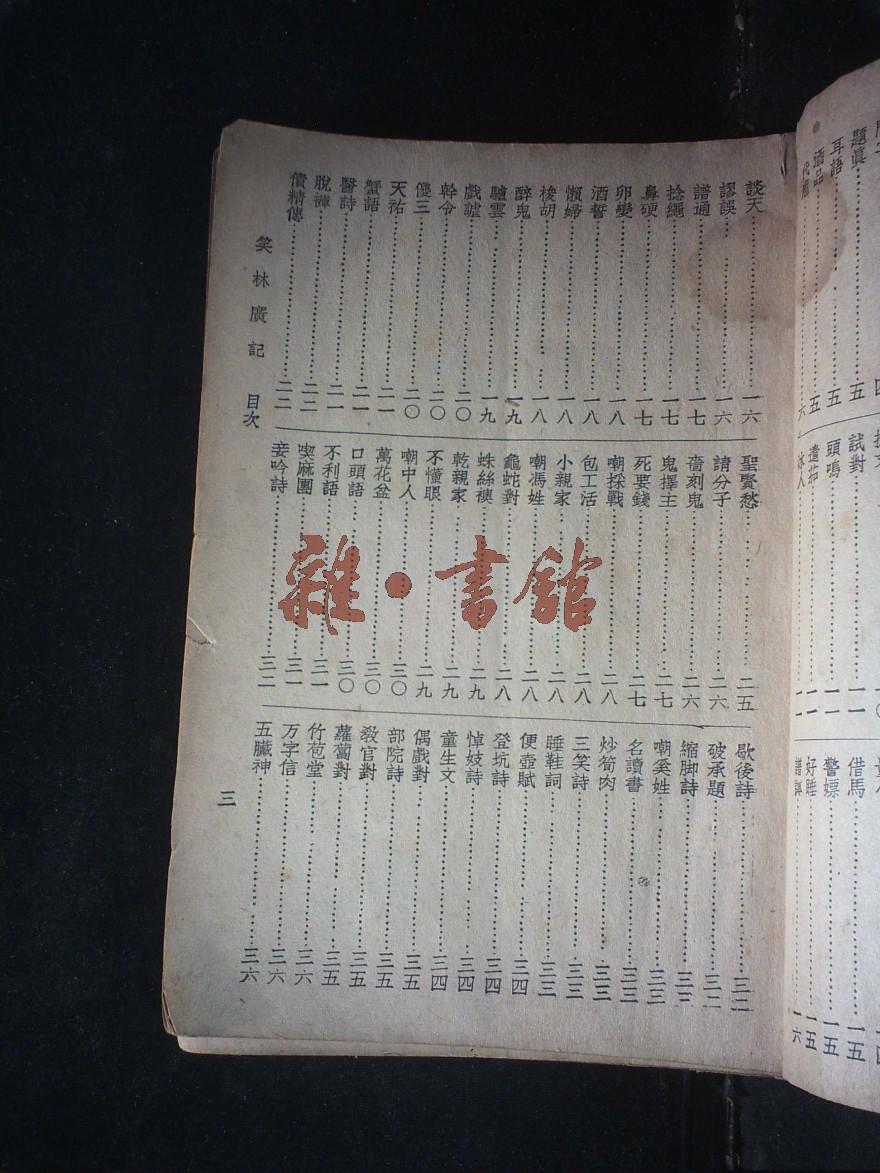 談天 一六
認誤 一六
譜通 一七
捻繩 一七
鼻硬 一七
卵變 一八
酒誓 一八
懶婦 一八
梭胡 一八
醉鬼 一九
驢雲 一九
戲謔 二〇
幹令 二〇
儍三 二〇
天祐 二一
蟹語 二一
醫詩 二一
脫褲 二二
債精傳 二二
聖賢愁 二五
請分子 二六
嗇刻鬼 二六
鬼擇主 二七
死要錢 二七
嘲採戰 二八
包工活 二八
小親家 二八
嘲馮姓 二八
龜蛇對 二八
蛛絲襖 二九
乾親家 二九
不懂眼 二九
嘲中人 三〇
萬花盆 三〇
口頭語 三〇
不利語 三一
喫麻團 三一
妾吟詩 三二
歇後詩 三二
破承題 三二
縮脚詩 三三
嘲奚姓 三三
名讀書 三三
炒筍肉 三三
三笑詩 三三
睡鞋詞 三三
便壺賦 三四
登坑詩 三四
悼妓詩 三四
童生文 三四
偶戲對 三五
部院詩 三五
敎官對 三五
蘿蔔對 三五
竹苞堂 三六
万字信 三六
五臟神 三六
笑林廣記 目次
三
題眞 五
耳語 五
酒品 五
六
試對 一一
頭鳴 一一
遺茄 一一
冰人
借馬 一五
警嫖 一五
好睡 一五
一六
雜·書館